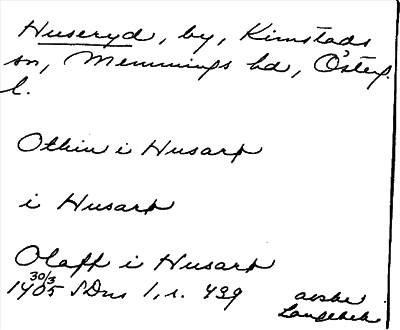 Huseryd, by, Kimstads
sn, Memmings hd, Österg.
l.
Othin i Husarp
i Husarp
Olaff i Husarp
30/3
1405 SDns 1, s. 439
Langebek